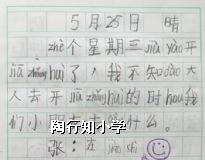 5月25日 晴
zhè个星期三jiā yào开
jiā zhǎng huì了，我不知dào大
人去开jiā zhǎng huì的时hou我
们小 什么。
陶行知小学
张：